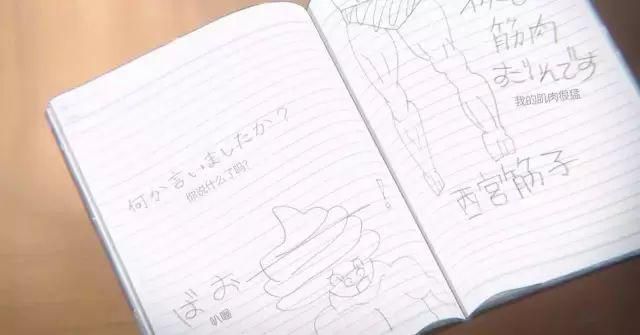 何か言いましたか?
你说什么了吗?
ばおー!
筋肉
すごいんです
我的肌肉很猛
西宮筋子